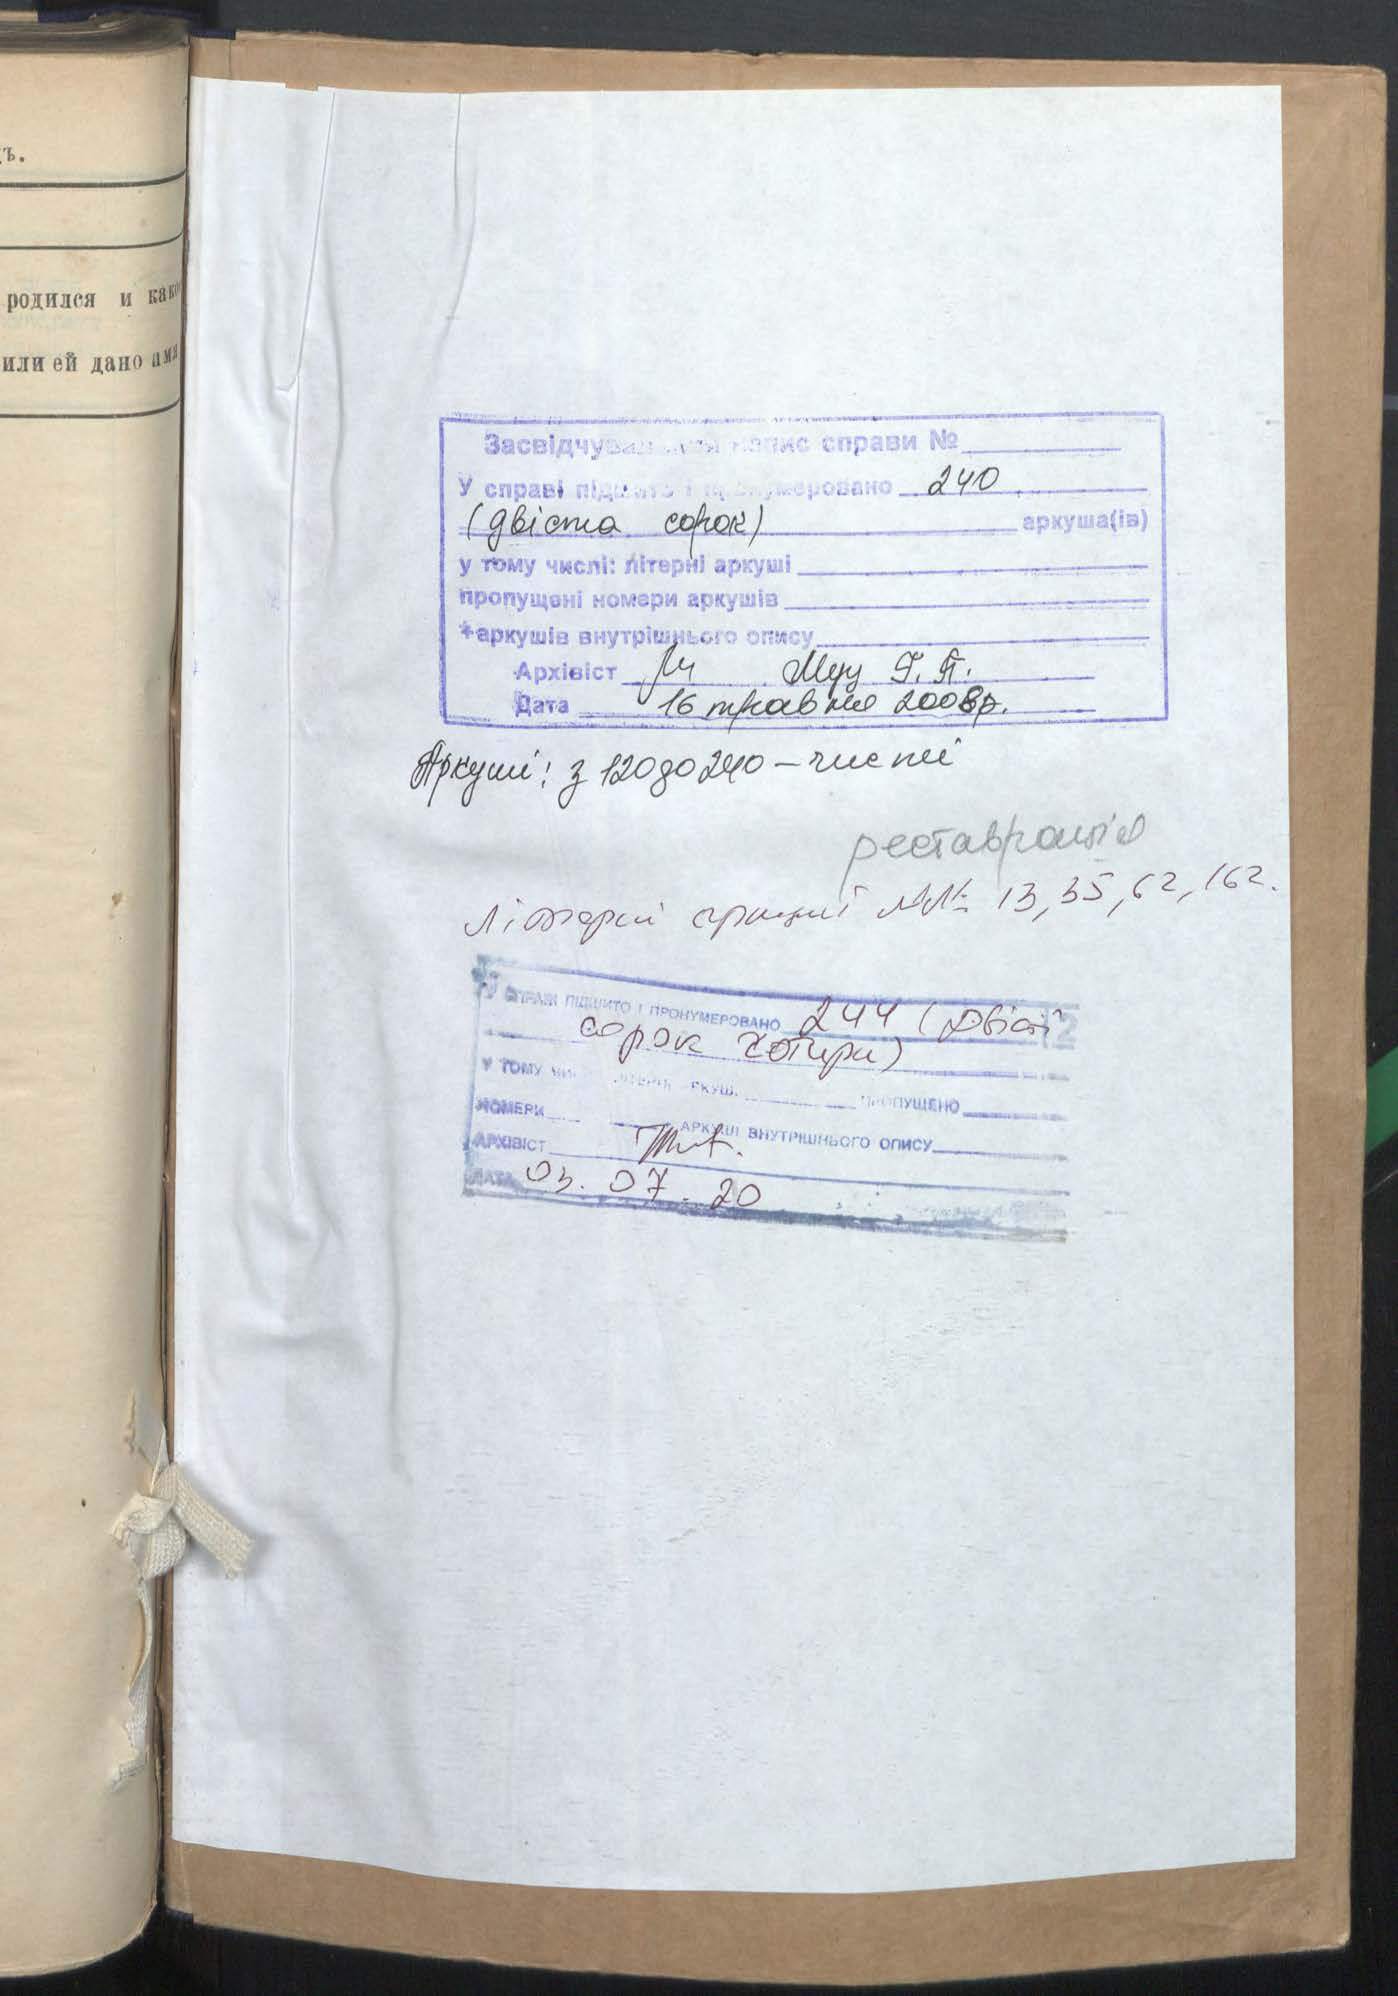 ъ.
родился и како
или ей дано имя
Засвідчувальний напис справи №
У справі підшито і пронумеровано 240
(двіста сорок) аркуша(ів)
у тому числі: літерні аркуші
пропущені номери аркушів
+аркушів внутрішнього опису
Архівіст Муц Г. П.
Дата 16 травня 2008р.
Аркуші: з 120 до 240 – чисті
реставрація
Літерні аркуші №№ 13, 35, 62, 162.
У СПРАВІ ПІДШИТО І ПРОНУМЕРОВАНО 244 (Двісті
сорок чотири)
У ТОМУ ЧИСЛІ ЛІТЕРНІ АРКУШІ ПРОПУЩЕНО
НОМЕРИ АРКУШІ ВНУТРІШНЬОГО ОПИСУ
АРХІВІСТ
ДАТА 03.07.20